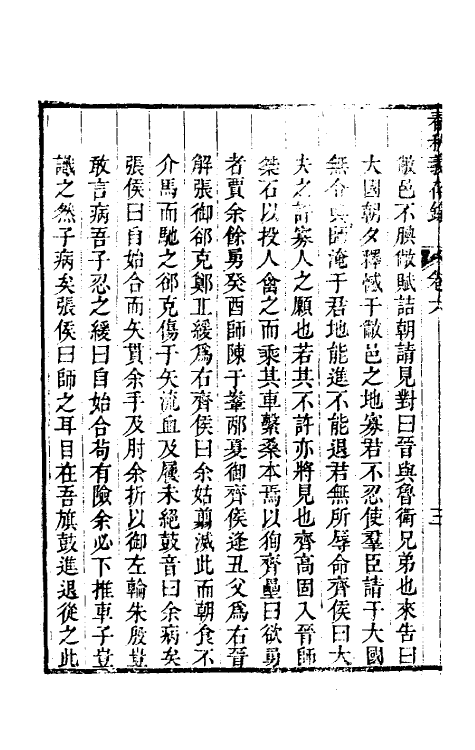 春秋義存錄 卷六 三
敝邑不腆敝賦詰朝請見對曰晉與魯衛兄弟也來告曰
大國朝夕釋憾于敝邑之地寡君不忍使羣臣請于大國
無令輿師淹于君地能進不能退君無所辱命齊侯曰大
夫之許寡人之願也若其不許亦將見也齊高固入晉師
桀石以投人禽之而乘其車繫桑本焉以狥齊壘曰欲勇
者賈余餘勇癸酉師陳于鞌邴夏御齊侯逢丑父爲右晉
解張御郤克鄭丘緩爲右齊侯曰余姑翦滅此而朝食不
介馬而馳之郤克傷于矢流血及屨未絕鼓音曰余病矣
張侯曰自始合而矢貫余手及肘余折以御左輪朱殷豈
敢言病吾子忍之緩曰自始合苟有險余必下推車子豈
識之然子病矣張侯曰師之耳目在吾旗鼓進退從之此